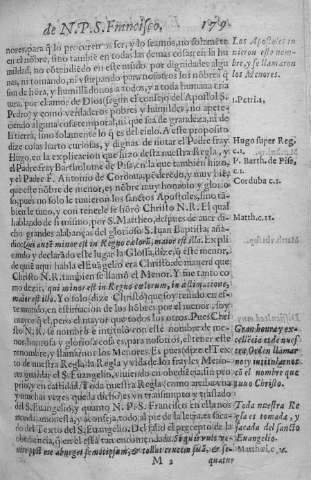 de N. P. S. Francisco. 179
nores, para q̃ lo procuremos ser, y lo seamos, no solamēte
en el nõbre, sino tambiē en todas las demas cosas en la hu
mildad, no cõtendiēdo en este mũdo por dignidades algu
nas, ni tomando, ni vsurpando para nosotros los nõbres q̃
son de hõra, y humillādonos a todos, y a toda humana cria
tura, por el amor de Dios (segun el consejo del Apostol S.
Pedro) y como verdaderos pobres y humildes, no apete-
ciendo alguna cosa temporal, ni que sea de grandeza, ni de
sino solamente lo q̃ es del cielo. A este proposito
dize cosas harto curiosas, y dignas de notar el Padre fray
Hugo, en la explicacion que hizo desta nuestra Regla, y
el Padre fray Bartholome de Pisa, en la que tambien hizo,
y el Padre F. Antonio de Cordoua, q̃
este nõbre de menor, es nõbre muy honroso y glorio
so, pues no solo le tuuieron los sanctos Apostoles, sino tã-
bien le tuuo, y con tenerle se hõrò Christo N. R. El qual
hablado de si mismo, por S. Mattheo, despues de auer di-
cho grandes alabanças del glorioso S. Iuan Baptista, aña-
dio: Qui autē minor est in Regno cœlorũ, maior est illo. Expli
cando y declarādo este lugar la Glosa, dize, q̃ este menor,
de quiē aqui habla el Euāgelio era Christo: de manera que
Christo N. R. tambien se llamò el Menor. Y fue tanto co
mo dezir, qui minor est in Regno cœlorum, in æstimatione,
maior est illo. Yo solo (dize Christo) que soy tenido en es-
te mundo, en estimacion de los hõbres por el menor, soy
mayor q̃ el, pero el mayor que todos los otros. Pues Chri
sto N. R. se nombrò e intitulò con este nombre de me-
nor, honrosa y gloriosa cosa es para nosotros, el tener este
renombre, y llamarnos los Menores. Es pues (dize el Tex-
to de nuestra Regla) la Regla y vida de los frayles Meno-
res guardar el S. Euangelio, viuiendo en obediēcia, sin pro
prio, y en castidad. Toda nuestra Regla (como arriba ya
y muchas vezes queda dicho) es vn transumpto y traslado
del S. Euangelio, y quanto N. P. S. Francisco en ella nos
manda, y aconseja, todo al pie de la letra es saca-
do del Texto del S. Euangelio. Del passo el precepto de la
obediēcia, q̃ en el està tan encomendado. Si quis vult ve-
nire post me abneget semetipsum, & tollat crucem suã, & se-
M 2 quatur
Los Apostoles tu
uieron este nom-
bre, y se llamaron
los Menores.
1. Petri 2.
Hugo super Reg.
c. 1.
P. Barth. de Pisa,
c. 1.
Corduba c. 1.
Matth. c. 11.
Gran honra y ex-
cellēcia es de nues
tra Orden llamar
nos y intitularnos
cõ el nombre que
tuuo Christo.
Toda nuestra Re
gla es tomada, y
sacada del sancto
Euangelio.
Matthæi, c. 16.